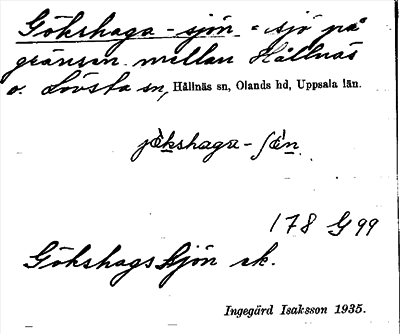 Gökshaga-sjön = sjö på
gränsen mellan Hållnäs
o. Lövsta sn, Hållnäs sn, Olands hd, Uppsala län.
jö̀kshaga-ʃö́n.
178 G 99
Gökshagssjön ek.
Ingegärd Isaksson 1935.